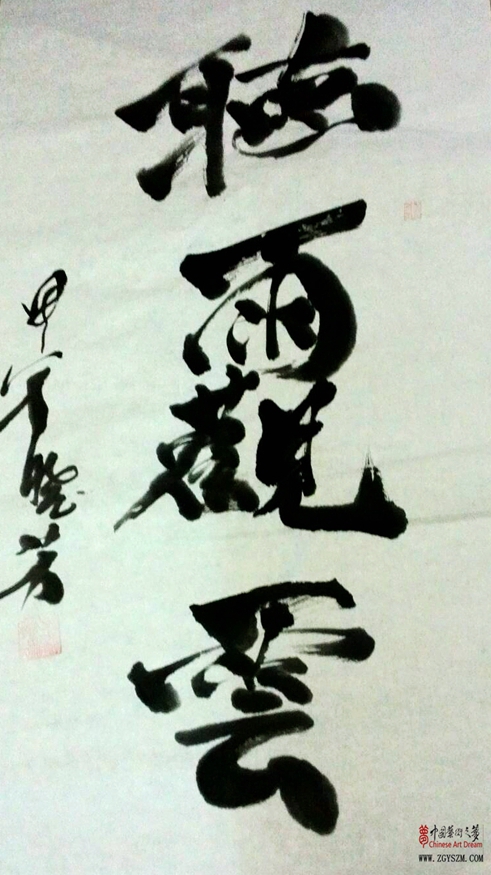 聽雨觀雲
甲午曉芳
中国艺术之梦
Chinese Art Dream
www.ZGYSZM.com